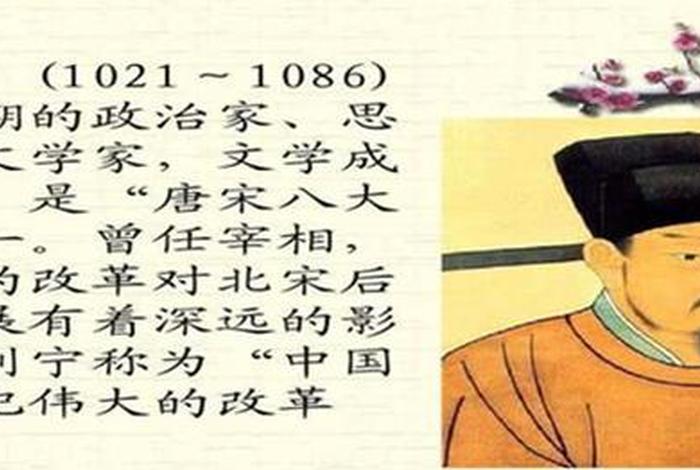 (1021～1086)
朝的政治家、思
文学家，文学成
是“唐宋八大
一。曾任宰相，
的改革对北宋后
展有着深远的影
列宁称为“中国
纪伟大的改革